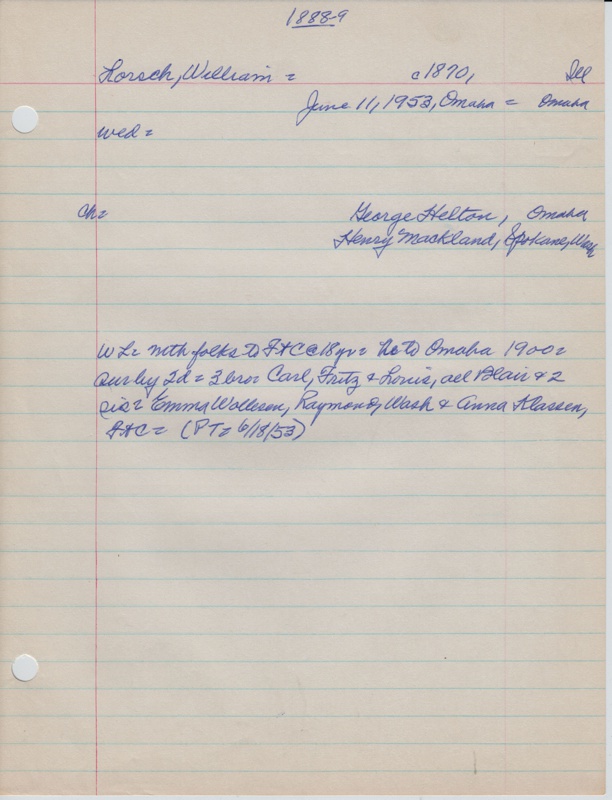 1888-9
Lorsch, William = c1870, Ill
June 11, 1953, Omaha = Omaha
wed =
Ch= George Helton, Omaha
Henry Mackland, Spokane, Wash
WL= with folks to Ft C @ 18 yr = he to Omaha 1900 =
sur by 2d = 3 bro = Carl, Fritz & Louis, all Blair & 2
sis = Emma Wolleson, Raymond, Wash & Anna Klassen,
Ft C = (PT= 6/18/53)